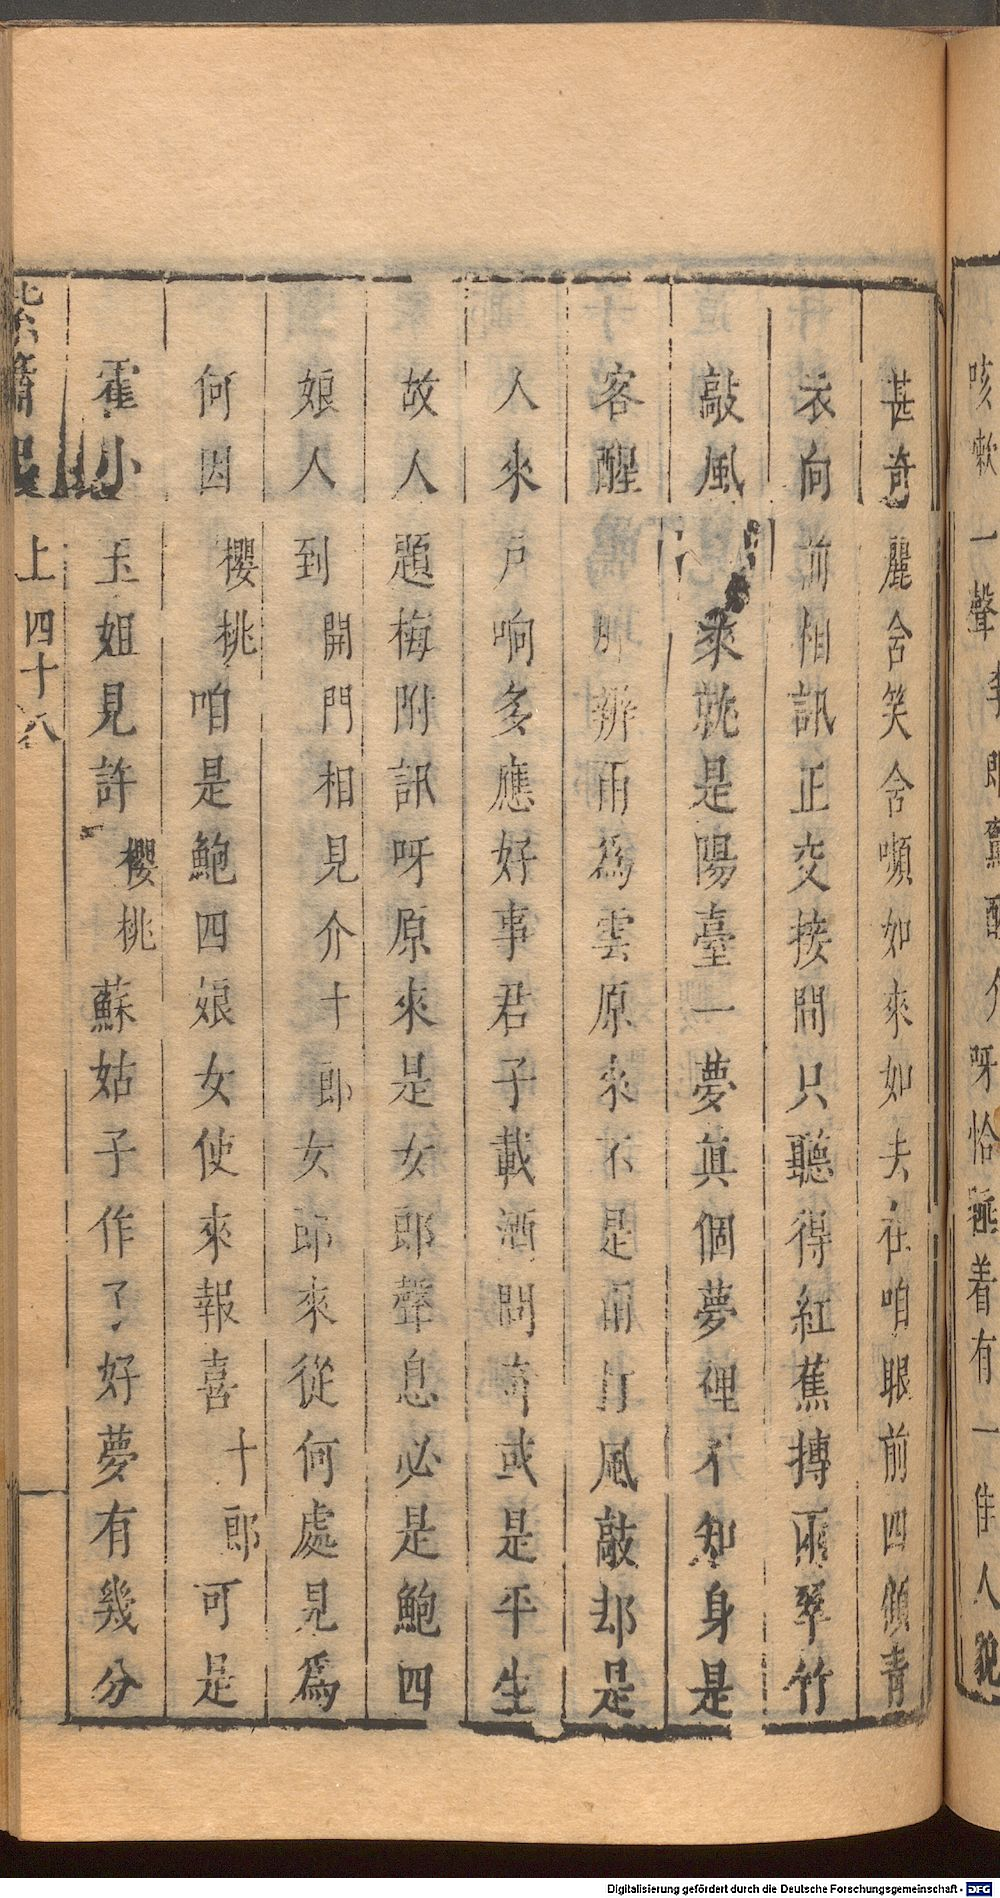 咳嗽一聲李郎驚醒介呀恰纔着有一佳人貌
甚奇麗含笑含嚬如來如去在咱眼前四傾青
衣向前相訊正交接間只聽得紅蕉搏雨翠竹
敲風來就是陽臺一夢眞個夢裡不知身是
客醒辨雨爲雲原來不是雨竹風敲却是
人來戶响多應好事君子載酒問竒或是平生
故人題梅附訊呀原來是女郎聲息必是鮑四
娘人到開門相見介十郎女郎來從何處見爲
何因櫻桃咱是鮑四娘女使來報喜十郎可是
霍小玉姐見許櫻桃蘇姑子作了好夢有幾分
紫簫記
上四十八
Digitalisierung gefördert durch die Deutsche Forschungsgemeinschaft - DFG